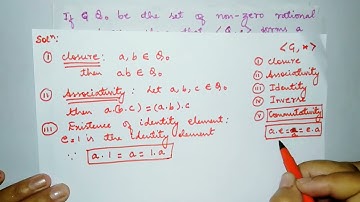 If G Q₀ be the set of non-zero rational
Solⁿ:
(i) closure: a, b ∈ Q₀
then ab ∈ Q₀
(ii) Associativity: Let a, b, c ∈ Q₀
then a.(b.c) = (a.b).c
(iii) Existence of identity element:
e=1 is the identity element
∵ a.1 = a = 1.a
<G, *>
(i) closure
(ii) Associativity
(iii) Identity
(iv) Inverse
(v) Commutativity
a.e = a = e.a